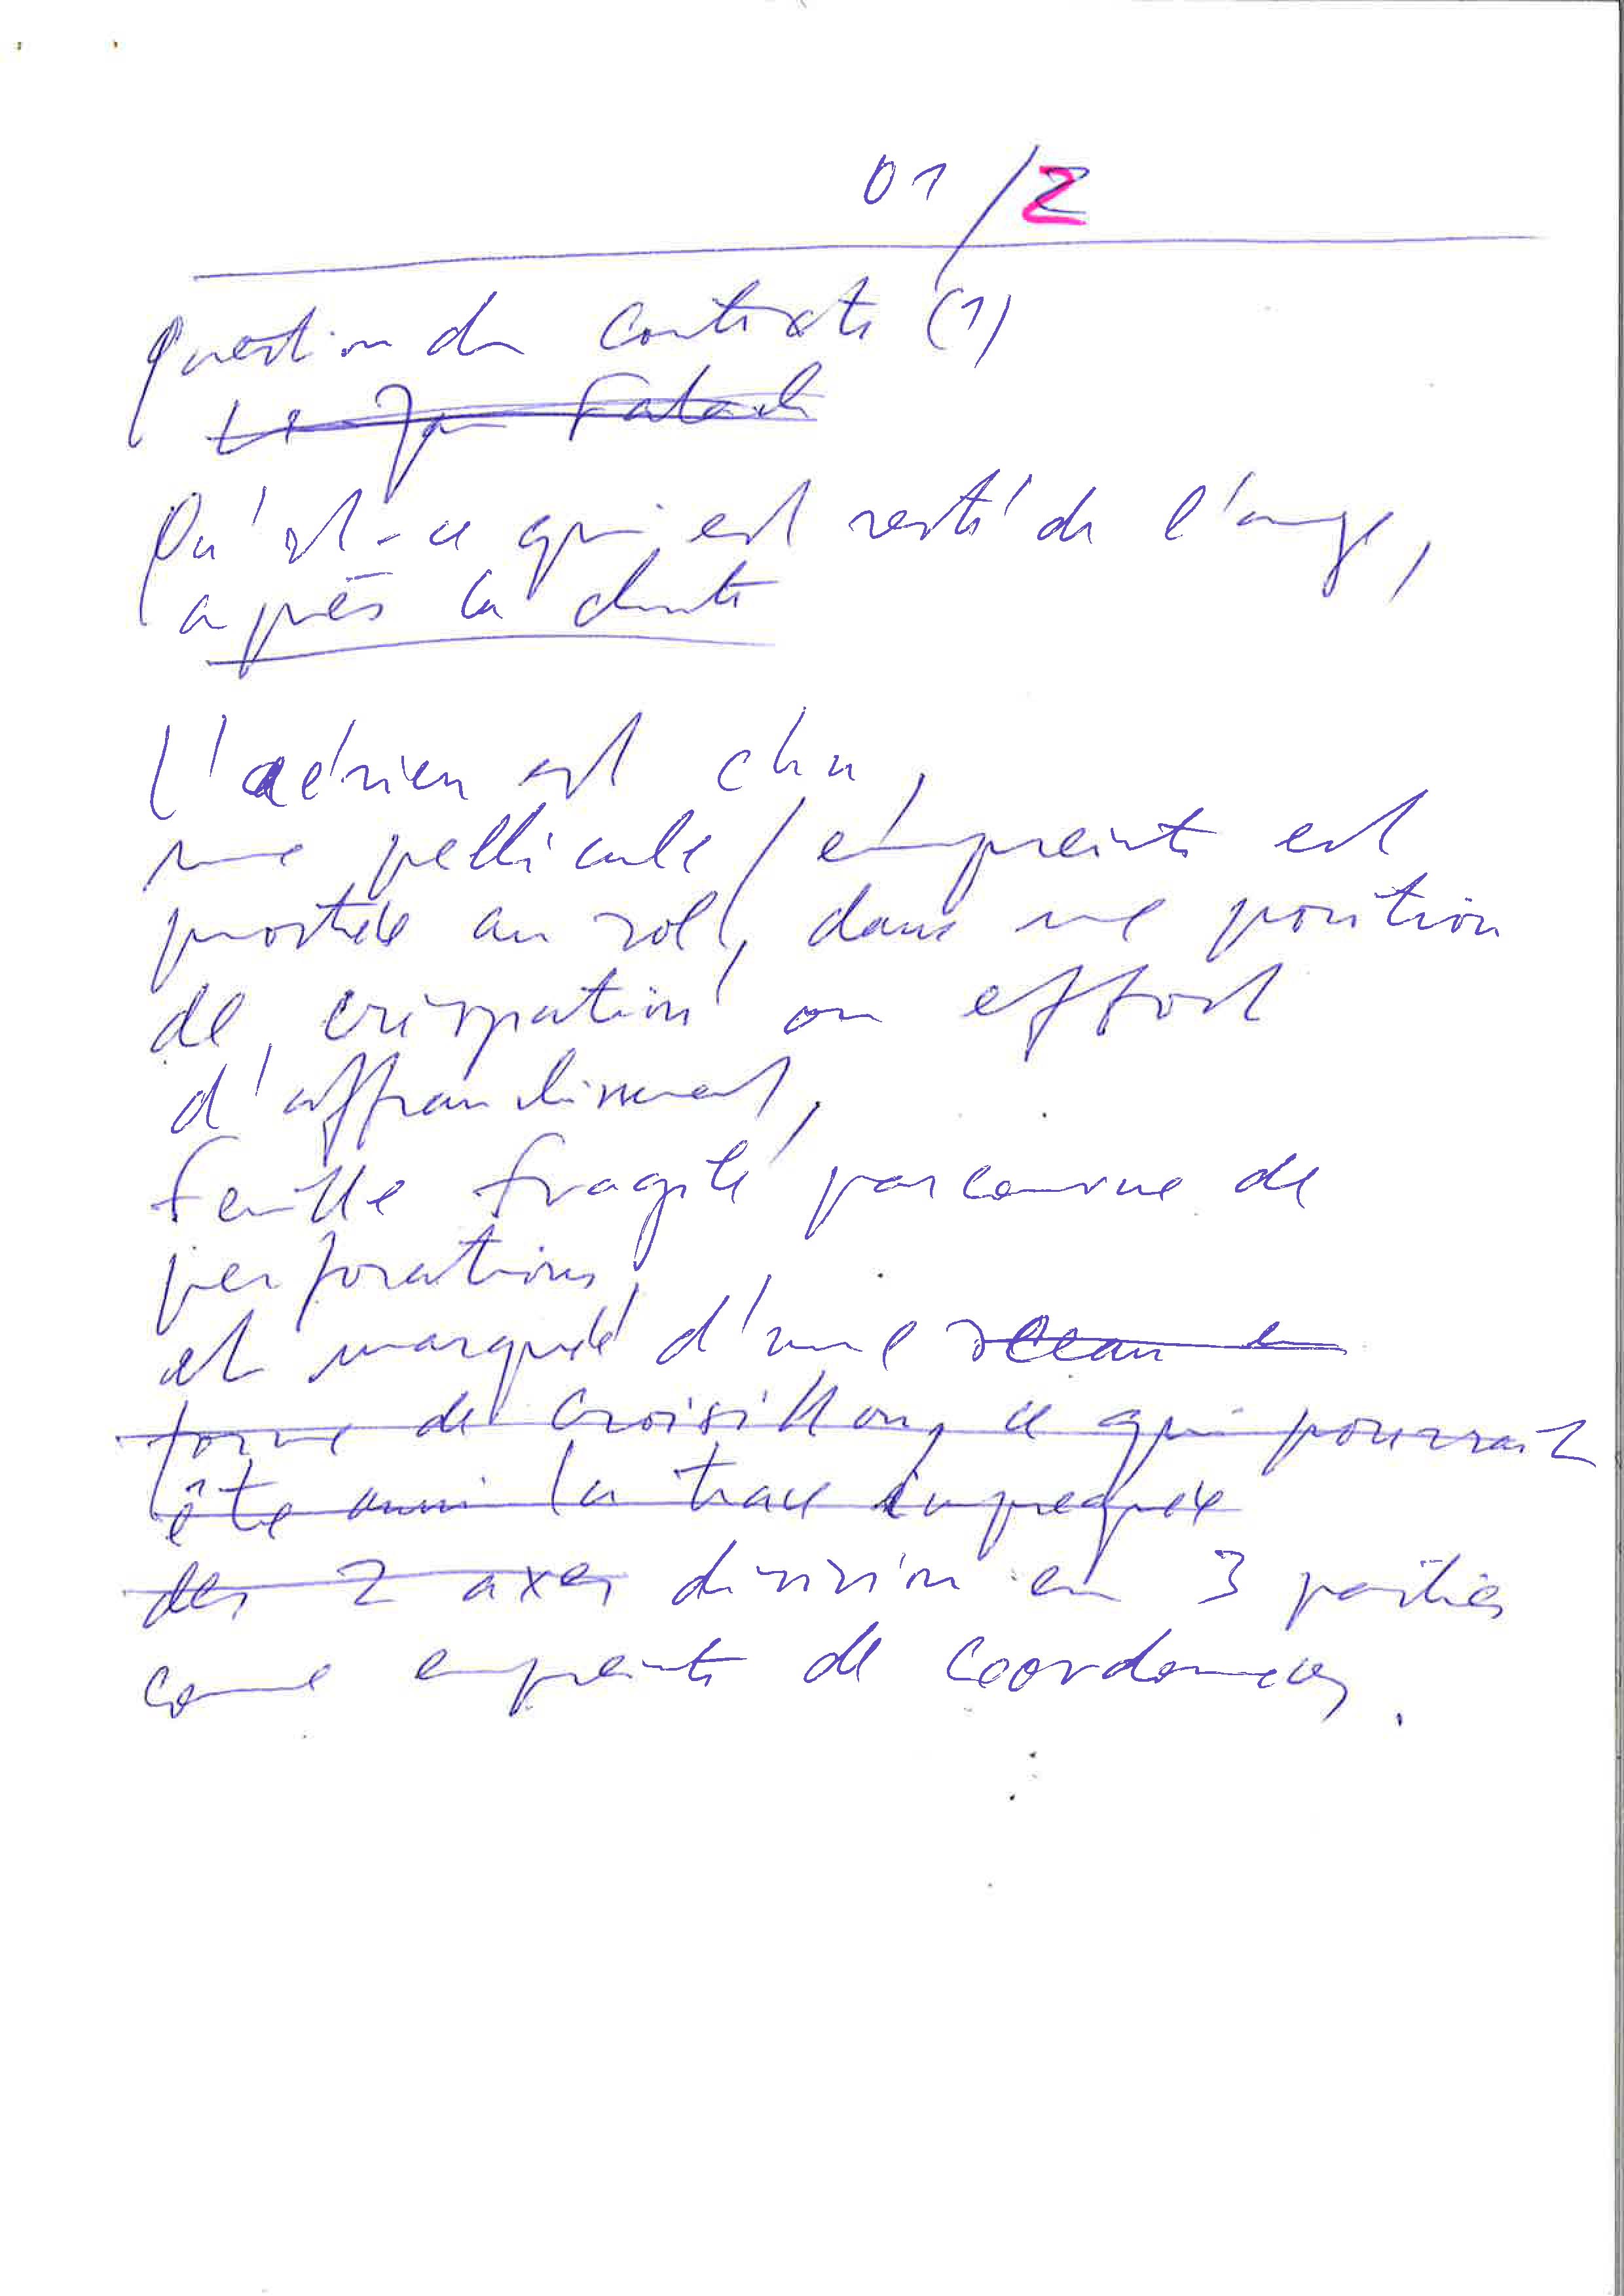 01/2
Question de contexte (1)
Qu'est-ce qui est resté de l'ange,
après la chute
L'aérien est chu,
une pellicule / empreinte est
portée au sol, dans une position
de crispation ou effort
d'affranchissement,
feuille fragile parcourue de
perforations
et marquée d'une sceau en
forme de croisillon, ce qui pourrait
être aussi la trace imprégnée
des 2 axes division en 3 parties
comme empreinte de coordonnées.